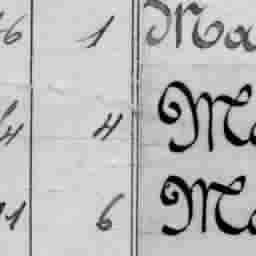 26 1 Ma
14 4 Ma
11 6 Ma